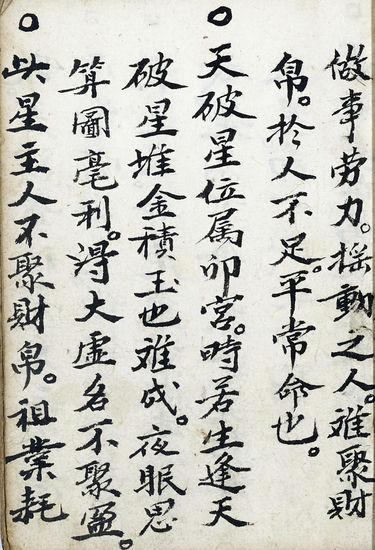 做事劳力。摇動之人。难聚财
帛。於人不足。平常命也。
○天破星位属卯宫。時若生逢天
破星堆金積玉也难成。夜眠思
算圖毫利。得大虚名不聚盈。
○此星主人不聚財帛。祖業耗